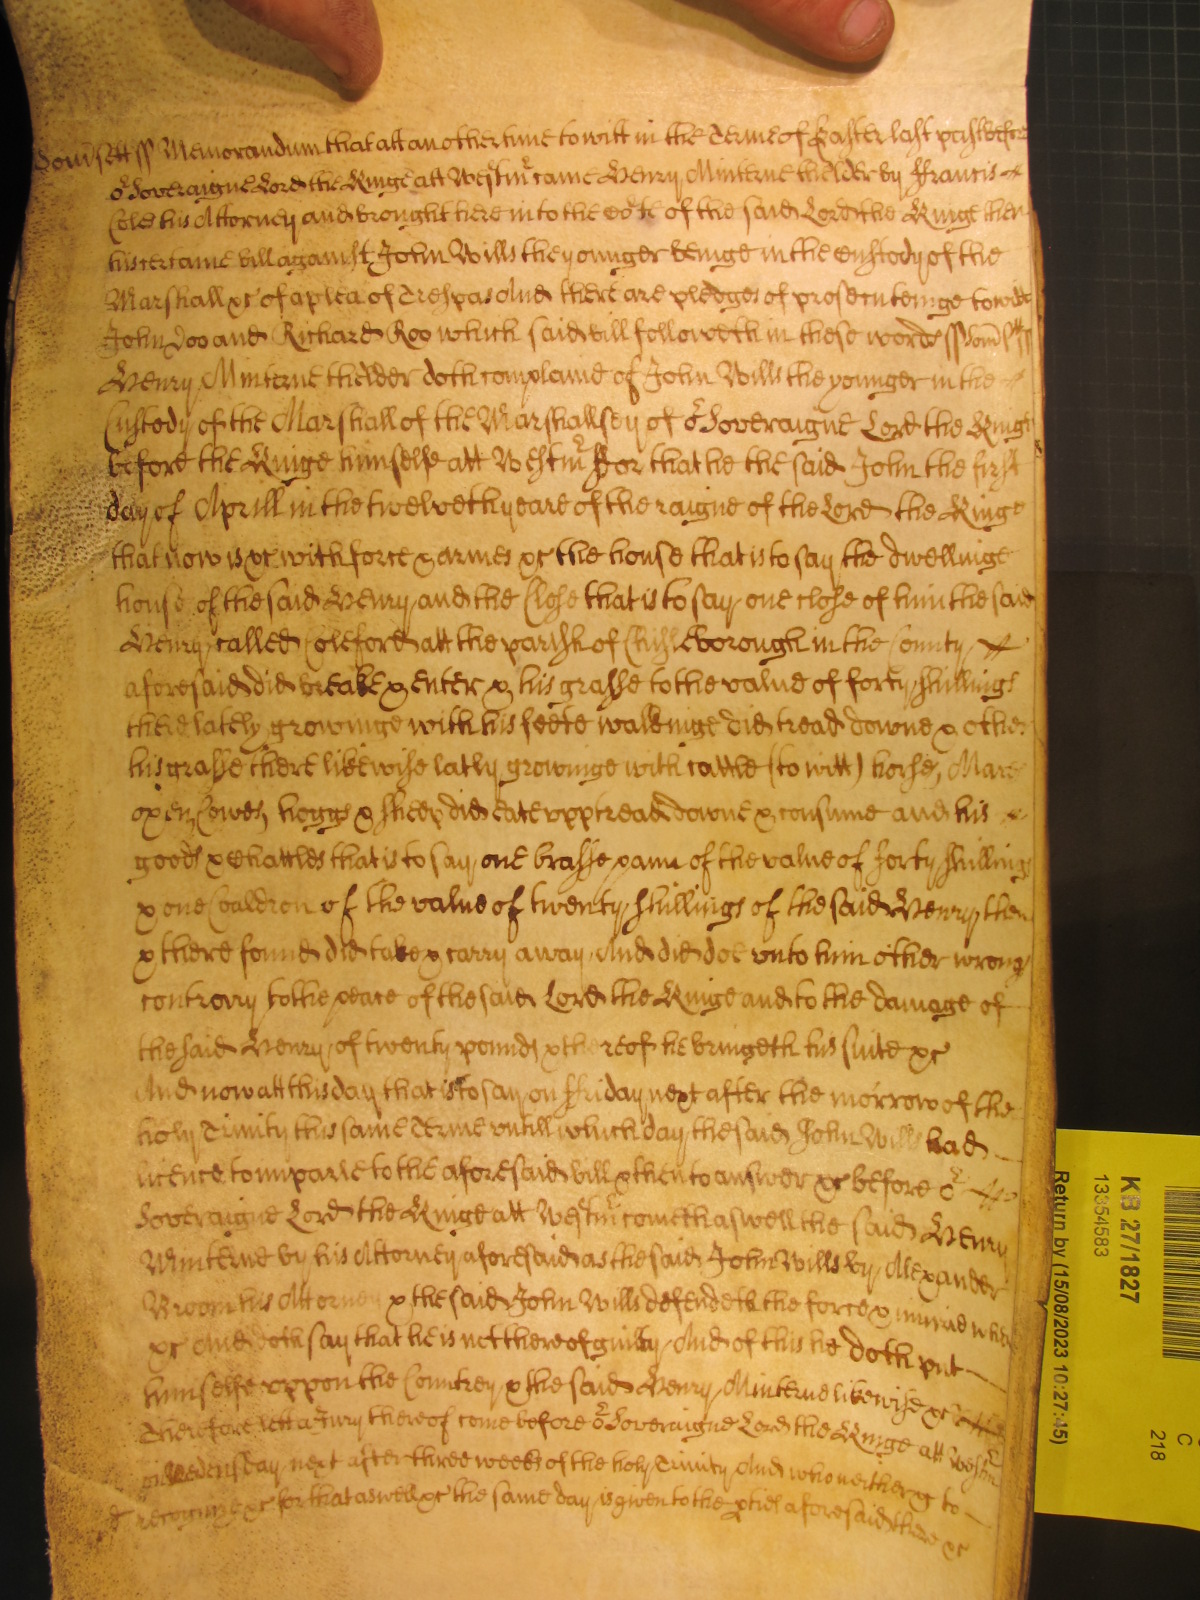 Som̃sett ss Memorandum that att another time to witt in the Terme of Easter last past before
oʳ Soveraigne Lord the Kinge att Westm̃r came Henry Minterne thelder by Ffrancis
Cole his Attorney and brought here into the Co'te of the said Lord the Kinge then
his certaine bill against John Wills the younger beinge in the custody of the
Marshall &c of a plea of Trespas And there are pledges of prosecuteinge to witt
John Doo and Richard Roo which said bill followeth in these words ss Som̃sett ss
Henry Minterne thelder doth complaine of John Wills the younger in the
Custody of the Marshall of the Marshallsey of oʳ Soveraigne Lord the Kinge
before the Kinge himselfe att Westm̃r For that he the said John the first
day of Aprill in the twelveth yeare of the raigne of the Lord the Kinge
that now is &c with force & armes &c the house that is to say the dwellinge
house of the said Henry and the Close that is to say one close of him the said
Henry called Coleford att the parish of Chisleborough in the County
aforesaid did breake & enter & his grasse to the value of forty shillings
there lately growinge with his feete walkinge did tread downe & other
his grasse there likewise latly growinge with cattle (to witt) horses, Mares
oxen, Cowes, hoggs & sheep did eate upp tread downe & consume and his
goods & chattles that is to say one brasse pann of the value of forty shillings
& one Cauldron of the value of twenty shillings of the said Henry then
& there found did take & carry away And did doe unto him other wrongs
contrary to the peace of the said Lord the Kinge and to the damage of
the said Henry of twenty pounds & thereof he bringeth his suite &c
And now att this day that is to say on Ffriday next after the morrow of the
holy Trinity this same Terme untill which day the said John Wills had
licence to imparle to the aforesaid bill & then to answer &c before oʳ
Soveraigne Lord the Kinge att Westm̃r cometh aswell the said Henry
Minterne by his Attorney aforesaid as the said John Wills by Alexander
Broom his Attorn & the said John Wills defendeth the force & iniurie when
&c And doth say that he is not thereof guilty And of this he doth put
himselfe uppon the Countrey & the said Henry Minterne likewise &c
Therefore lett a Jury thereof come before oʳ Soveraigne Lord the Kinge att Westm̃r
on Wednesday next after three weeks of the holy Trinity And who neither &c to
recognize &c for that aswell &c the same day is given to the pties aforesaid there &c
KB 27/1827
13354583
Return by (15/08/2023 10:27:45)
C
218